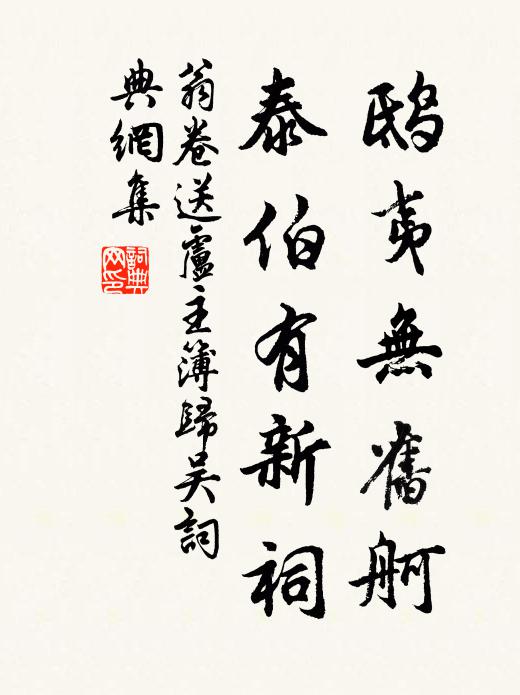 鴟夷無舊舸
泰伯有新祠
翁卷送盧主簿歸吴詞
典網集
詞典網印